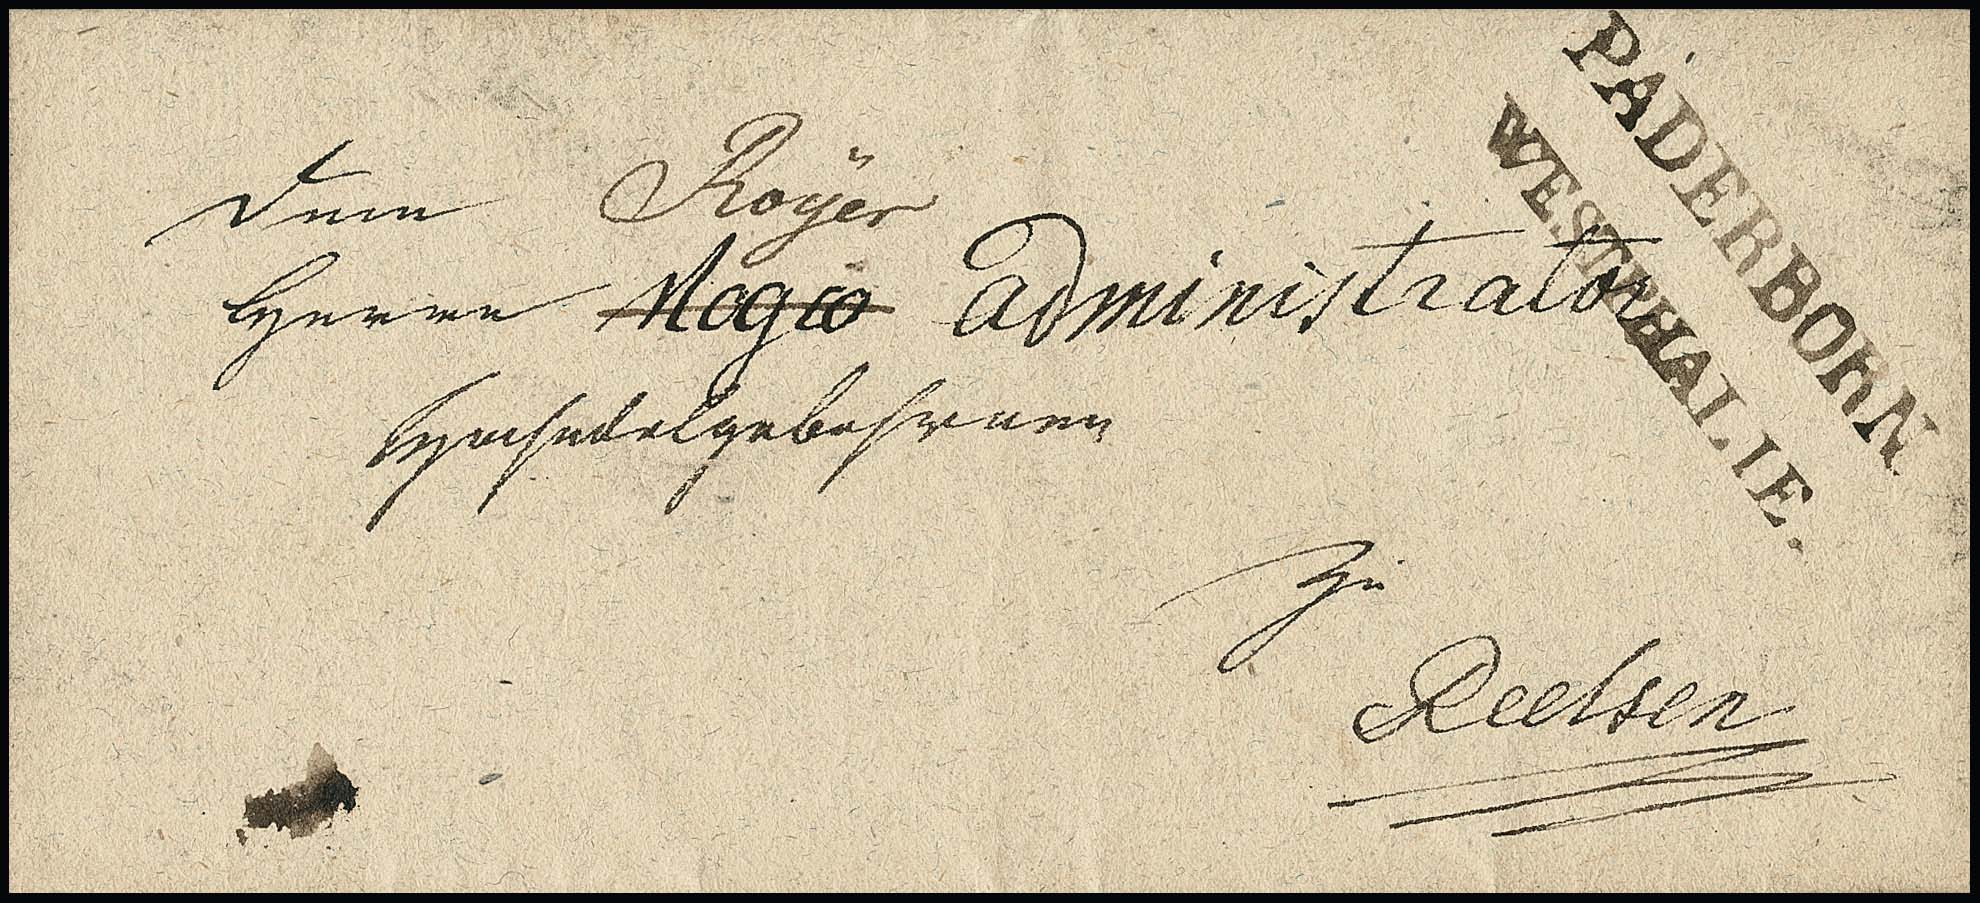 PADERBORN
WESTPHALIE.
Dem Royer
Herrn administrator
Hochedelgebohrnen
zu
Reelsen